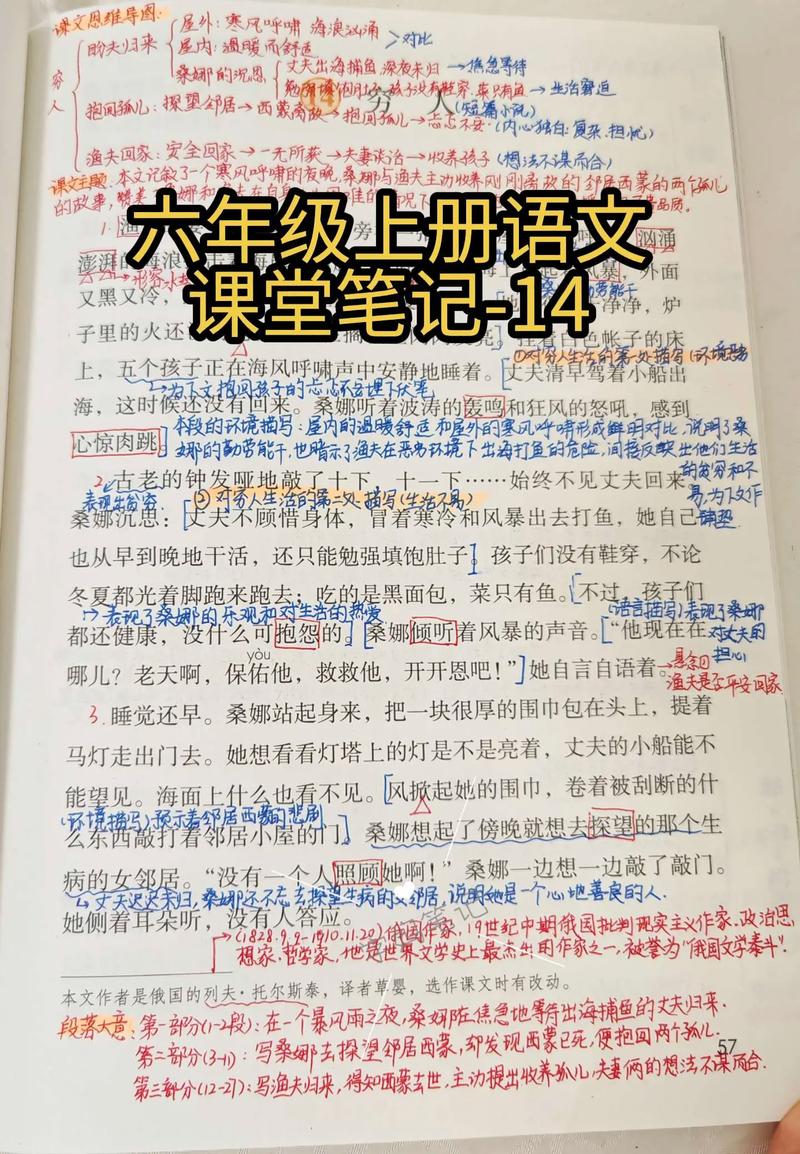 课文思维导图:
穷人
盼夫归来
屋外:寒风呼啸 海浪汹涌
屋内:温暖而舒适
>对比
桑娜的沉思
丈夫出海捕鱼,深夜未归→焦急等待
勉强填饱肚子 孩子没有鞋穿,菜只有鱼→生活窘迫
14 穷人
(短篇小说)
抱回孤儿:探望邻居→西蒙离故→抱回孤儿→忐忑不安(内心独白:复杂、担忧)
渔夫回家:安全回家→一无所获→夫妻谈话→收养孩子(想法不谋而合)
课文主题:本文记叙了一个寒风呼啸的夜晚,桑娜与渔夫主动收养刚刚离故的邻居西蒙的两个孤儿
的故事,
品质。
六年级上册语文
课堂笔记-14
1.渔
旁
汹涌
澎湃的海浪
风暴,外面
又黑又冷,
形容水
勤劳能干
干净,炉
子里的火还
挂着白色帐子的床
①对穷人生活的第一处描写(环境恶劣
上,五个孩子正在海风呼啸声中安静地睡着。丈夫清早驾着小船出
→为下文抱回孩子的忐忑不安埋下伏笔
海,这时候还没有回来。桑娜听着波涛的轰鸣和狂风的怒吼,感到
心惊肉跳
本段的环境描写:屋内的温暖舒适和屋外的寒风呼啸形成鲜明对比,说明了桑
娜的勤劳能干,也暗示了渔夫在恶劣环境下出海打鱼的危险,间接反映出他们生活
的贫穷和不
易,为下文作
铺垫.
2.古老的钟发哑地敲了十下,十一下……始终不见丈夫回来。
表现出贫穷
②对穷人生活的第二处描写(生活不易)
桑娜沉思:丈夫不顾惜身体,冒着寒冷和风暴出去打鱼,她自己
也从早到晚地干活,还只能勉强填饱肚子。孩子们没有鞋穿,不论
冬夏都光着脚跑来跑去;吃的是黑面包,菜只有鱼。不过,孩子们
→表现了桑娜的乐观和对生活的热爱
(语言描写)表现了桑娜
对丈夫的
担心
都还健康,没什么可抱怨的。桑娜倾听着风暴的声音。“他现在在
yòu
哪儿?老天啊,保佑他,救救他,开开恩吧!”她自言自语着。
→悬念①
渔夫是否平安回家.
3.睡觉还早。桑娜站起身来,把一块很厚的围巾包在头上,提着
马灯走出门去。她想看看灯塔上的灯是不是亮着,丈夫的小船能不
能望见。海面上什么也看不见。风掀起她的围巾,卷着被刮断的什
(环境描写)预示着邻居西蒙的悲剧
么东西敲打着邻居小屋的门。桑娜想起了傍晚就想去探望的那个生
病的女邻居。“没有一个人照顾她啊!”桑娜一边想一边敲了敲门。
→丈夫迟迟未归,桑娜还不忘去探望生病的女邻居,说明她是一个心地善良的人.
她侧着耳朵听,没有人答应。
(1828.9.9-1910.11.20)俄国作家,19世纪中期俄国批判现实主义作家、政治思
想家、哲学家,他是世界文学史上最杰出的作家之一,被誉为“俄国文学泰斗”.
本文作者是俄国的列夫·托尔斯泰,译者草婴,选作课文时有改动。
段落大意:第一部分(1-2段):在一个暴风雨之夜,桑娜在焦急地等待出海捕鱼的丈夫归来.
第二部分(3-11):写桑娜去探望邻居西蒙,却发现西蒙已死,便抱回两个孤儿.
57
第三部分(12-27):写渔夫归来,得知西蒙去世,主动提出收养孤儿,夫妻俩的想法不谋而合.